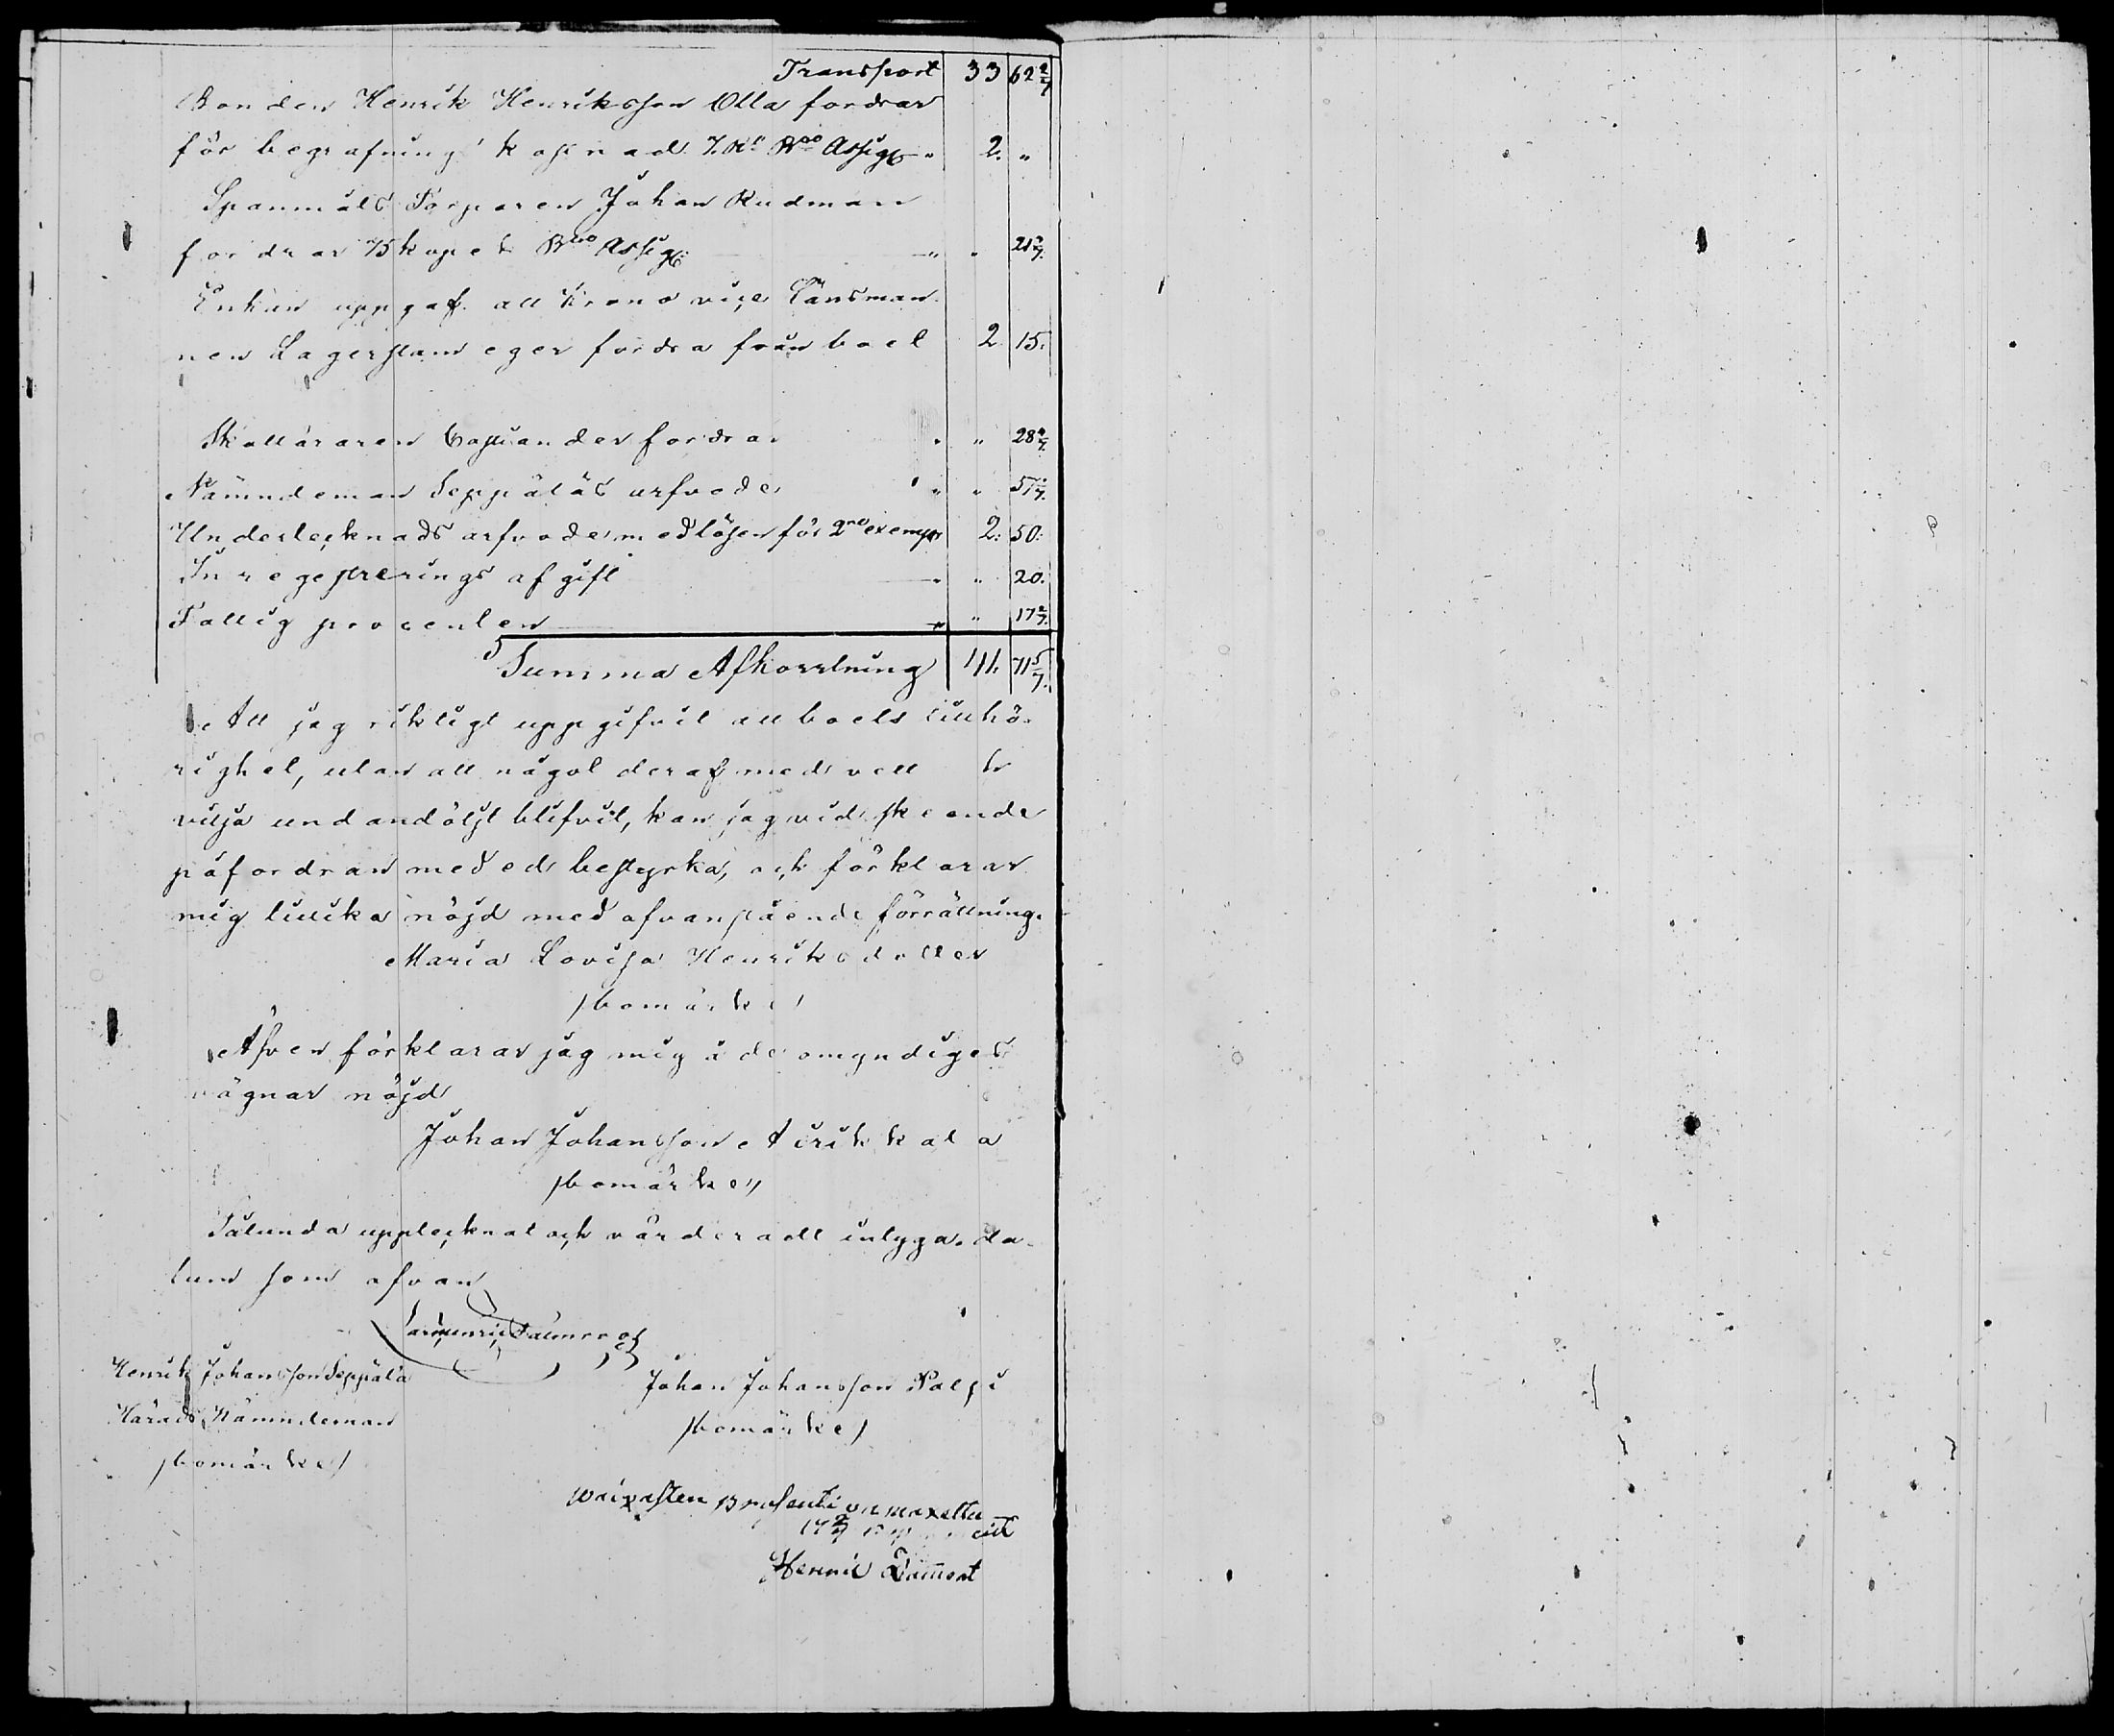 Transport 33 62 2/7
Bonden Henrik Henriksson Olla fordrar
för begrafnings kostnad 7. Rl Bco Assig " 2. "
Spanmåls Torparen Johan Rudman
fordrar 75 kopek Bco Assig " " 21 3/7.
Enkan uppgaf. att Krono vice Länsman
nen Lagerstam eger fordra från boet 2 15.
Skattäraren fordrar " " 28 4/7.
Nämndeman Seppäläs arfvode " " 57 1/7.
Undertecknads arfvode med lösen för 2ne exempr 2. 50.
Inregistrerings afgift " " 20.
Fattig procenten " " 17 2/7.
Summa Afkorrtning 41. 71 5/7.
Att jag riktigt uppgifvit all boets tillhö-
righet, utan att något deraf med vett &
vilja undandöljt blifvit, kan jag vid skeende
påfordran med ed bestyrka, och förklarar
mig tillika nöjd med ofvanstående förrättning.
Maria Lovisa Henriksdotter
/bomärke/
Äfven förklarar jag mig å de omyndiges
vägnar nöjd
Johan Johansson Airikkala
/bomärke/
Sålunda upptecknat och värderadt intyga. da-
tum som ofvan
Henrik Johansson Seppälä
Johan Johansson
Härads Nämndeman
/bomärke/
/bomärke/
maxettu
17 2/7
Henric